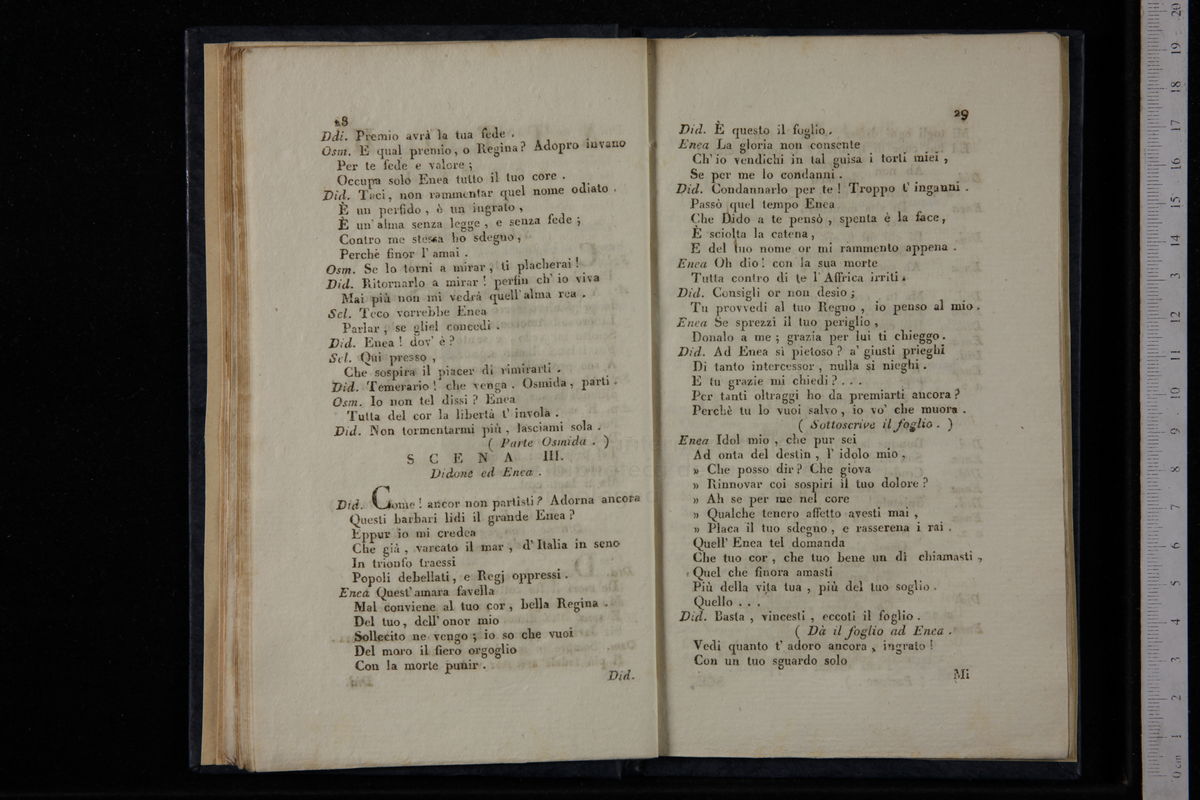 28
Ddi. Premio avrà la tua fede .
Osm. E qual premio, o Regina? Adopro invano
Per te fede e valore ;
Occupa solo Enea tutto il tuo core .
Did. Taci, non rammentar quel nome odiato .
È un perfido , è un ingrato ,
È un' alma senza legge , e senza fede ;
Contro me stessa ho sdegno ,
Perchè finor l' amai .
Osm. Se lo torni a mirar , ti placherai !
Did. Ritornarlo a mirar ! perfin ch' io viva
Mai più non mi vedrà quell' alma rea .
Sel. Teco vorrebbe Enea
Parlar , se gliel concedi .
Did. Enea ! dov' è ?
Sel. Qui presso ,
Che sospira il piacer di rimirarti .
Did. Temerario ! che venga . Osmida , parti .
Osm. Io non tel dissi ? Enea
Tutta del cor la libertà t' invola .
Did. Non tormentarmi più , lasciami sola .
( Parte Osmida . )
SCENA III.
Didone ed Enea .
Did. Come ! ancor non partisti ? Adorna ancora
Questi barbari lidi il grande Enea ?
Eppur io mi credea
Che già , varcato il mar , d' Italia in seno
In trionfo traessi
Popoli debellati , e Regj oppressi .
Enea Quest' amara favella
Mal conviene al tuo cor , bella Regina .
Del tuo , dell' onor mio
Sollecito ne vengo ; io so che vuoi
Del moro il fiero orgoglio
Con la morte punir .
Did.
29
Did. È questo il foglio .
Enea La gloria non consente
Ch' io vendichi in tal guisa i torti miei ,
Se per me lo condanni .
Did. Condannarlo per te ! Troppo t' inganni .
Passò quel tempo Enea
Che Dido a te pensò , spenta è la face ,
È sciolta la catena ,
E del tuo nome or mi rammento appena .
Enea Oh dio ! con la sua morte
Tutta contro di te l' Affrica irriti .
Did. Consigli or non desio ;
Tu provvedi al tuo Regno , io penso al mio .
Enea Se sprezzi il tuo periglio ,
Donalo a me ; grazia per lui ti chieggo .
Did. Ad Enea sì pietoso ? a' giusti prieghi
Di tanto intercessor , nulla si nieghi .
E tu grazie mi chiedi ? . . .
Per tanti oltraggi ho da premiarti ancora ?
Perchè tu lo vuoi salvo , io vo' che muora .
( Sottoscrive il foglio . )
Enea Idol mio , che pur sei
Ad onta del destin , l' idolo mio ,
» Che posso dir ? Che giova
» Rinnovar coi sospiri il tuo dolore ?
» Ah se per me nel core
» Qualche tenero affetto avesti mai ,
» Placa il tuo sdegno , e rasserena i rai .
Quell' Enea tel domanda
Che tuo cor , che tuo bene un dì chiamasti ,
Quel che finora amasti
Più della vita tua , più del tuo soglio .
Quello . . .
Did. Basta , vincesti , eccoti il foglio .
( Dà il foglio ad Enea .
Vedi quanto t' adoro ancora , ingrato !
Con un tuo sguardo solo
Mi